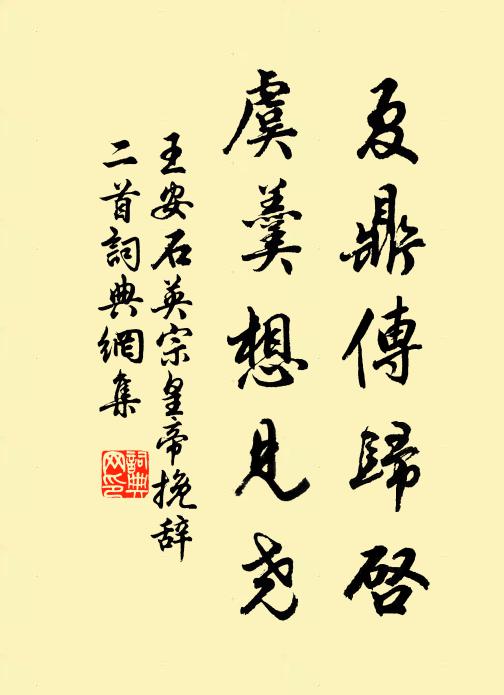 夏鼎傳歸啓
虞羹想見尧
王安石英宗皇帝挽辞
二首詞典網集
詞典网印